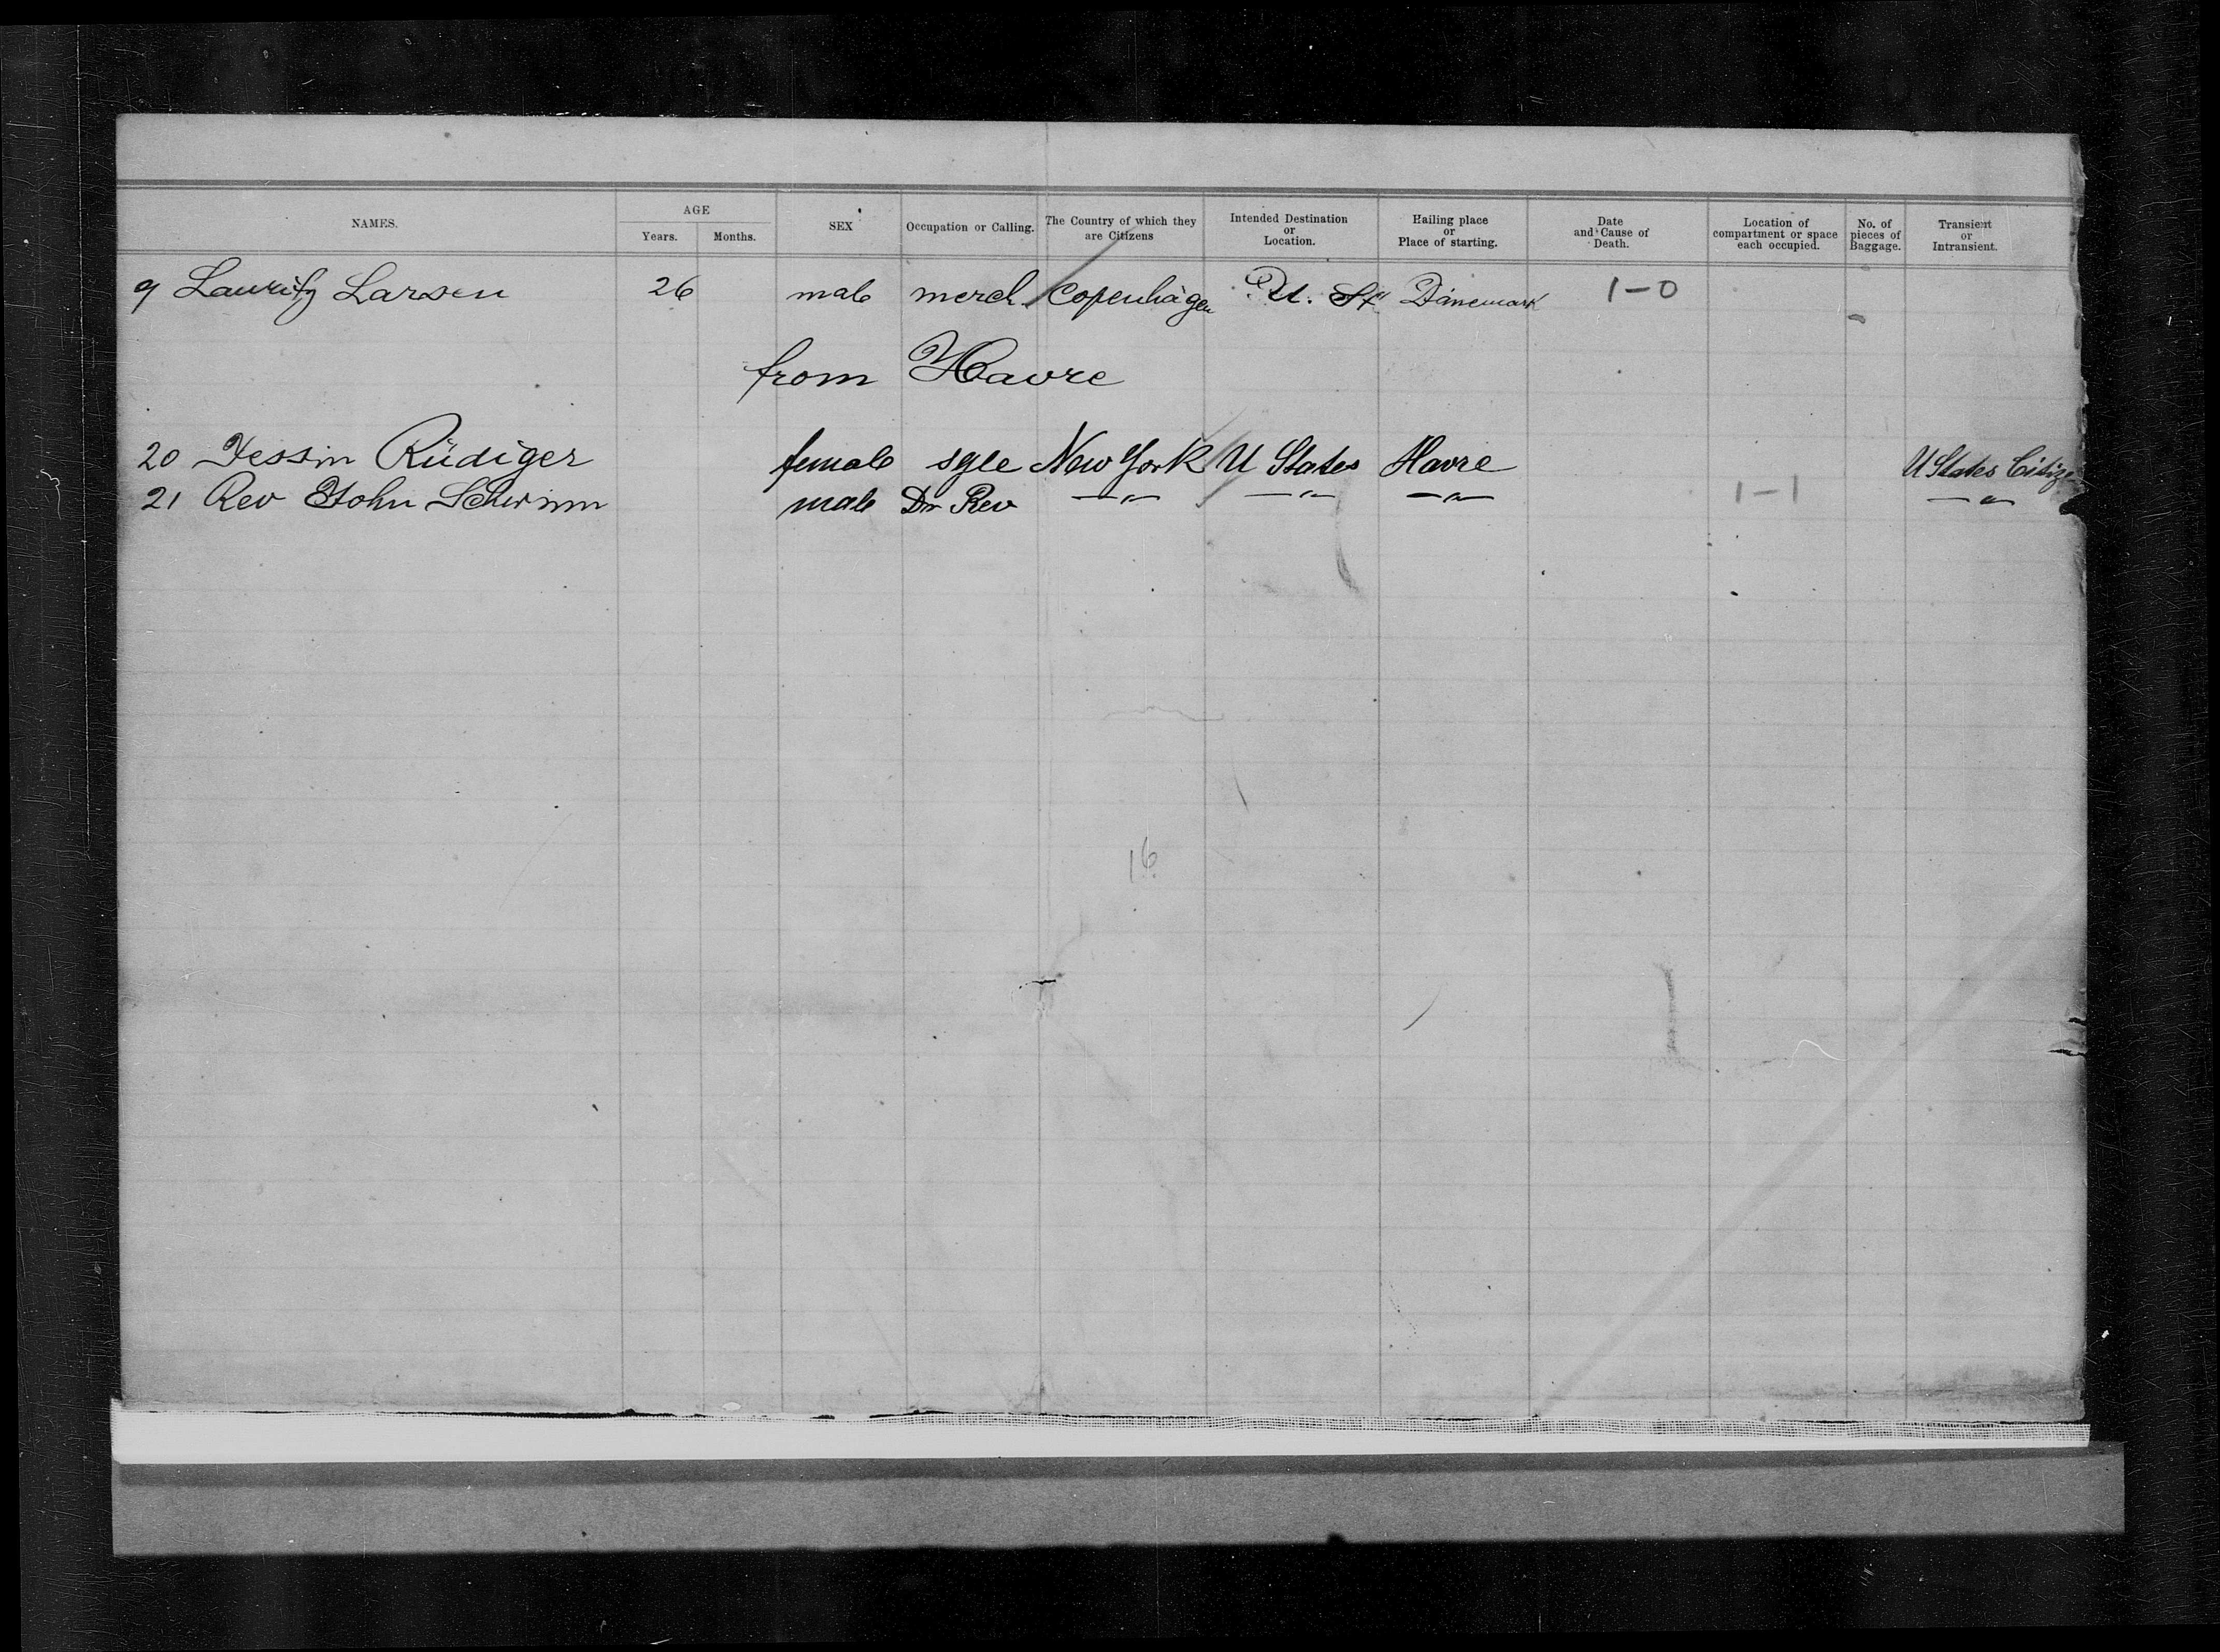 NAMES. AGE Years. Months. SEX Occupation or Calling. The Country of which they are Citizens Intended Destination or Location. Hailing place or Place of starting. Date and Cause of Death. Location of compartment or space each occupied. No. of pieces of Baggage. Transient or Intransient.
9 Lauritz Larsen 26 male merch. Copenhagen U. St Dänemark 1-0
from Havre
20 Jessin Rüdiger female sgle New York U States Havre U States Citize
21 Rev John Schwinn male Dr Rev —"— —"— —"— 1-1 —"—
16